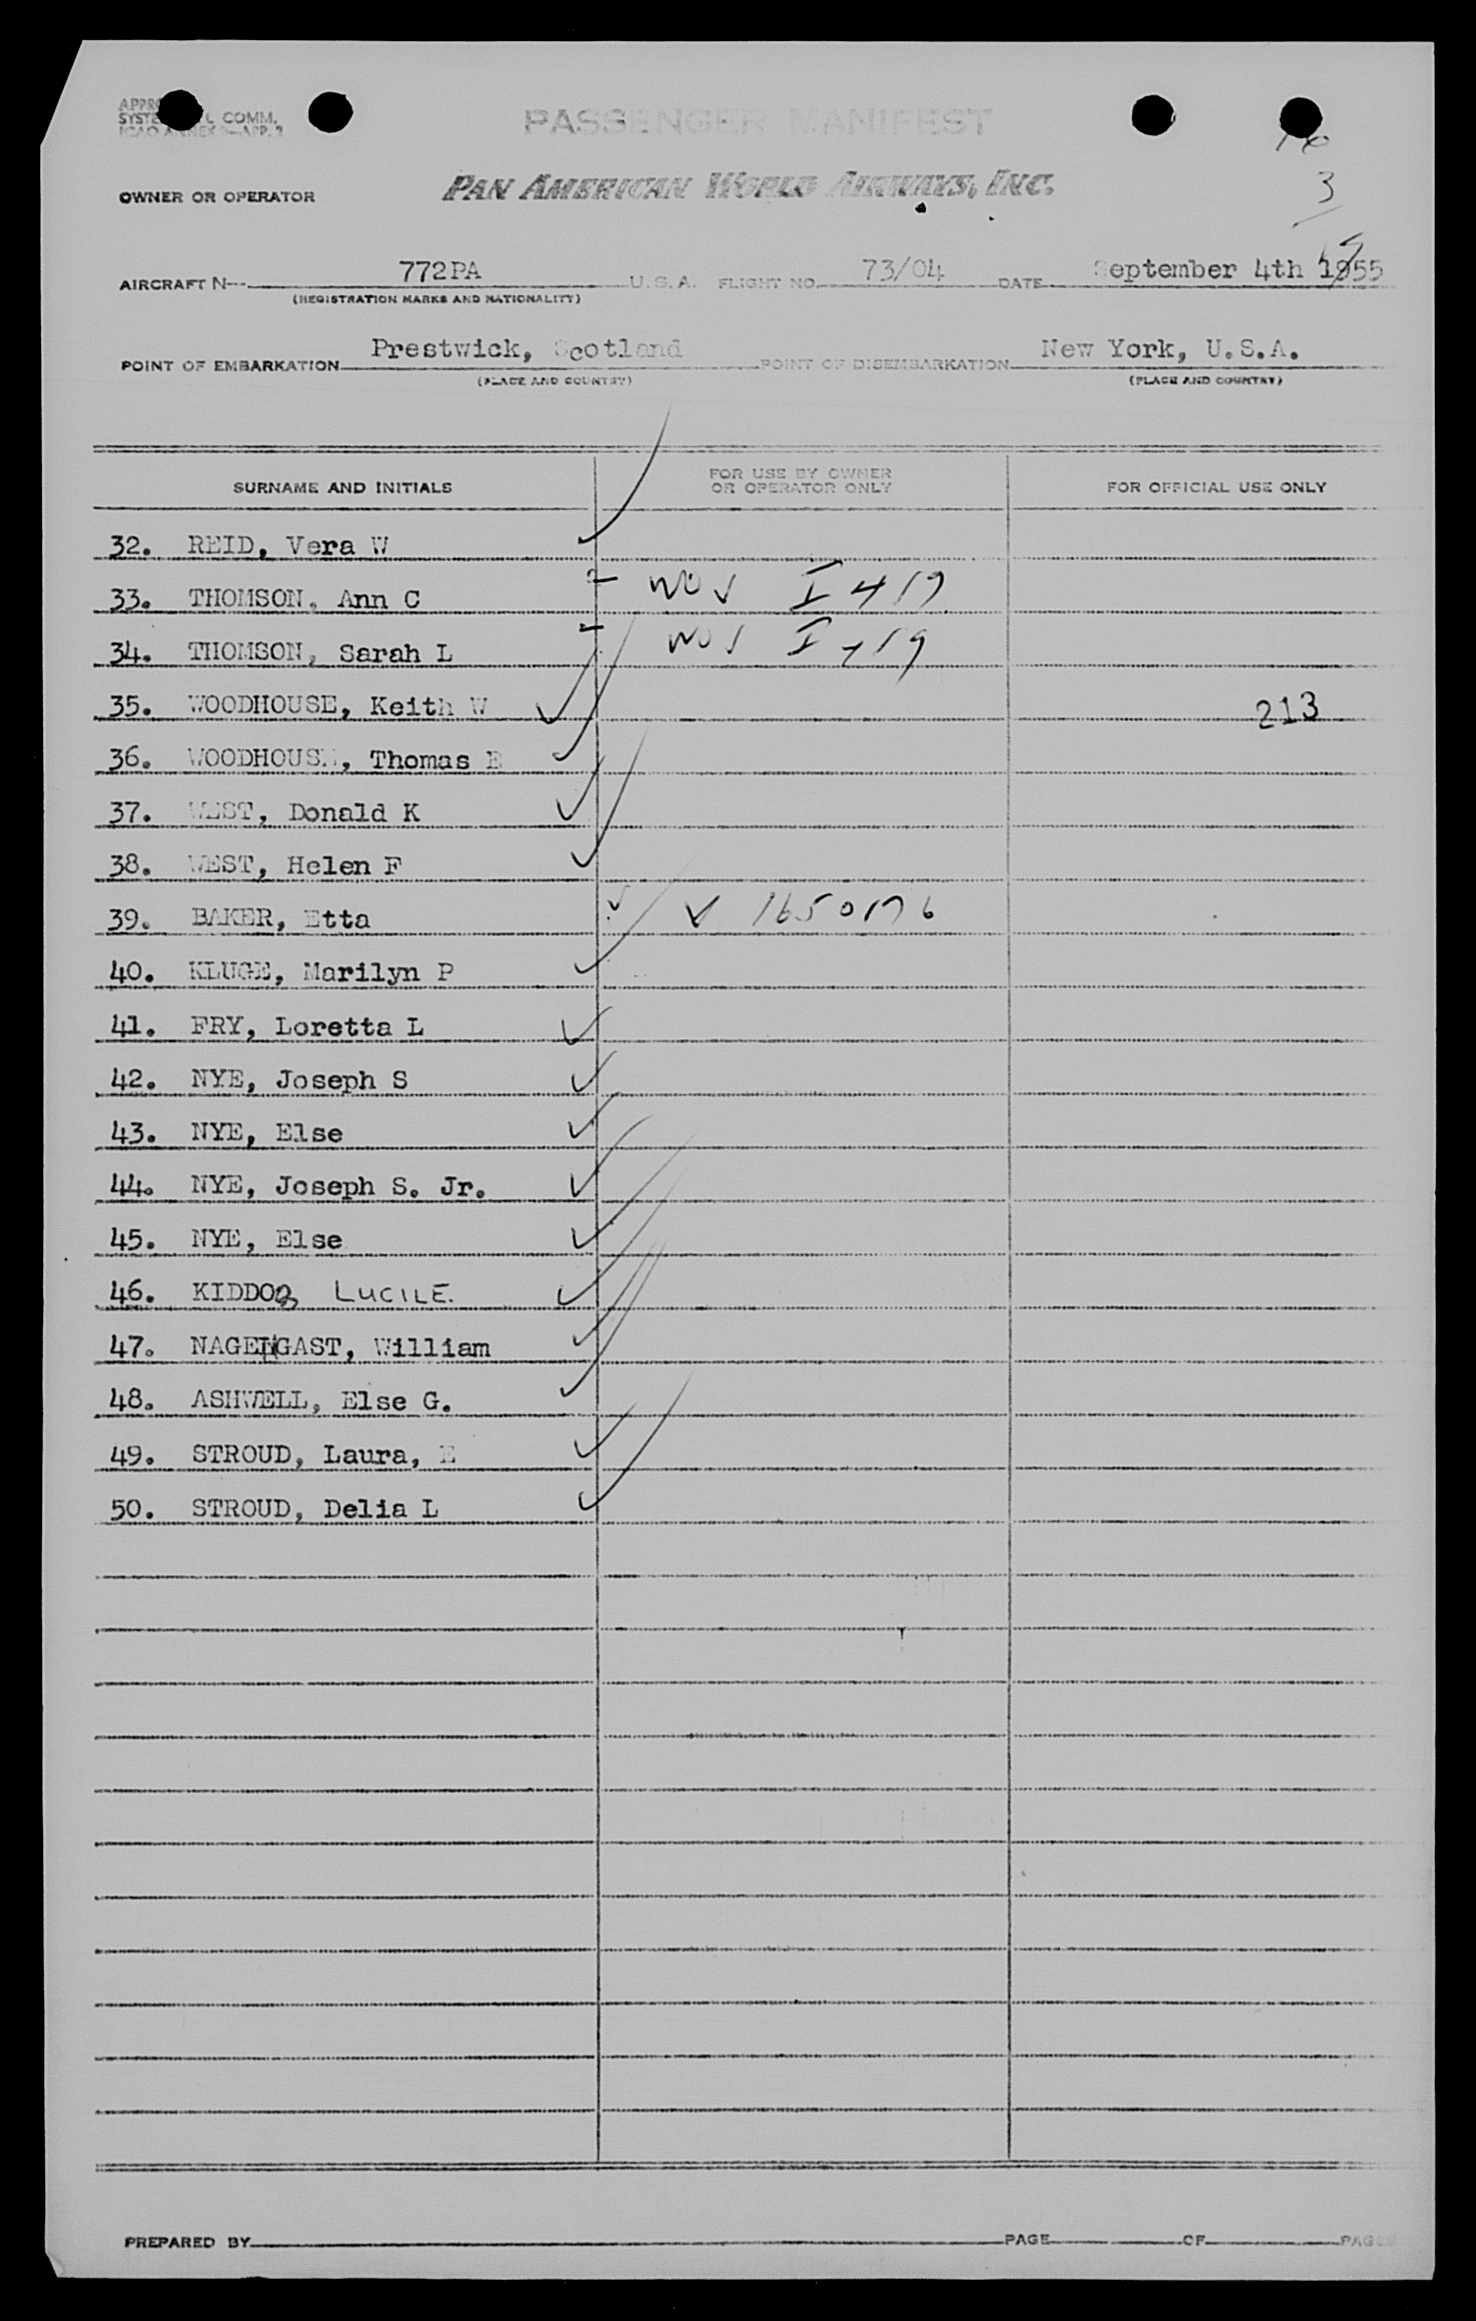 PASSENGER MANIFEST
COMM.
OWNER OR OPERATOR PAN AMERICAN WORLD AIRWAYS, INC.
3
AIRCRAFT N-- 772PA U.S.A. FLIGHT NO. 73/04 DATE September 4th 1955
(REGISTRATION MARKS AND NATIONALITY)
POINT OF EMBARKATION Prestwick, Scotland POINT OF DISEMBARKATION New York, U.S.A.
(PLACE AND COUNTRY) (PLACE AND COUNTRY)
SURNAME AND INITIALS FOR USE BY OWNER OR OPERATOR ONLY FOR OFFICIAL USE ONLY
32. REID, Vera W
33. THOMSON, Ann C I 419
34. THOMSON, Sarah L I 419
35. WOODHOUSE, Keith W 213
36. WOODHOUSE, Thomas E
37. WEST, Donald K
38. WEST, Helen F
39. BAKER, Etta V 1650176
40. KLUGE, Marilyn P
41. FRY, Loretta L
42. NYE, Joseph S
43. NYE, Else
44. NYE, Joseph S. Jr.
45. NYE, Else
46. KIDDOO LUCILE.
47. NAGENGAST, William
48. ASHWELL, Else G.
49. STROUD, Laura, E
50. STROUD, Delia L
PREPARED BY PAGE OF PAGES